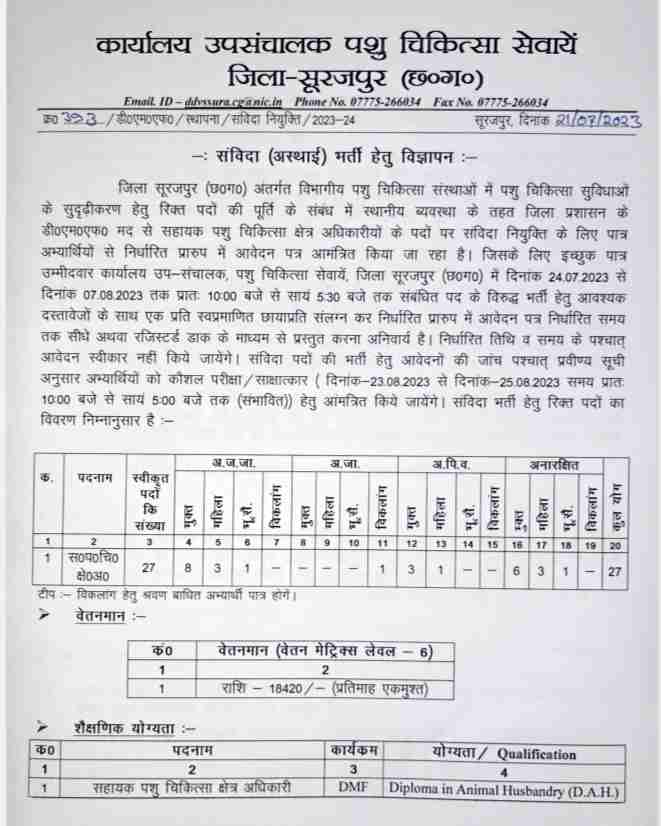 कार्यालय उपसंचालक पशु चिकित्सा सेवायें
जिला-सूरजपुर (छ०ग०)
Email. ID – ddvssura.cg@nic.in Phone No. 07775-266034 Fax No. 07775-266034
क्र० 393 /डी०एम०एफ० /स्थापना /संविदा नियुक्ति /2023-24 सूरजपुर, दिनांक 21/07/2023
-: संविदा (अस्थाई) भर्ती हेतु विज्ञापन :-
जिला सूरजपुर (छ०ग०) अंतर्गत विभागीय पशु चिकित्सा संस्थाओं में पशु चिकित्सा सुविधाओं
के सुदृढ़ीकरण हेतु रिक्त पदों की पूर्ति के संबंध में स्थानीय व्यवस्था के तहत जिला प्रशासन के
डी०एम०एफ० मद से सहायक पशु चिकित्सा क्षेत्र अधिकारीयों के पदों पर संविदा नियुक्ति के लिए पात्र
अभ्यार्थियों से निर्धारित प्रारुप में आवेदन पत्र आमंत्रित किया जा रहा है। जिसके लिए इच्छुक पात्र
उम्मीदवार कार्यालय उप-संचालक, पशु चिकित्सा सेवायें, जिला सूरजपुर (छ०ग०) में दिनांक 24.07.2023 से
दिनांक 07.08.2023 तक प्रातः 10:00 बजे से सायं 5:30 बजे तक संबंधित पद के विरुद्ध भर्ती हेतु आवश्यक
दस्तावेजों के साथ एक प्रति स्वप्रमाणित छायाप्रति संलग्न कर निर्धारित प्रारुप में आवेदन पत्र निर्धारित समय
तक सीधे अथवा रजिस्टर्ड डाक के माध्यम से प्रस्तुत करना अनिवार्य है। निर्धारित तिथि व समय के पश्चात्
आवेदन स्वीकार नहीं किये जायेगे। संविदा पदों की भर्ती हेतु आवेदनों की जांच पश्चात् प्रवीण्य सूची
अनुसार अभ्यार्थियों को कौशल परीक्षा/साक्षात्कार ( दिनांक-23.08.2023 से दिनांक-25.08.2023 समय प्रातः
10:00 बजे से सायं 5:00 बजे तक (संभावित)) हेतु आंमत्रित किये जायेंगे। संविदा भर्ती हेतु रिक्त पदों का
विवरण निम्नानुसार है :-
क्र. पदनाम स्वीकृत पदों कि संख्या अ.ज.जा. अ.जा. अ.पि.व. अनारक्षित कुल योग
मुक्त महिला भू.सै. विकलांग मुक्त महिला भू.सै. विकलांग मुक्त महिला भू.सै. विकलांग मुक्त महिला भू.सै. विकलांग
1 2 3 4 5 6 7 8 9 10 11 12 13 14 15 16 17 18 19 20
1 स०प०चि० क्षे०अ० 27 8 3 1 – – – – 1 3 1 – – 6 3 1 – 27
टीप :- विकलांग हेतु श्रवण बाधित अभ्यार्थी पात्र होगें।
➤ वेतनमान :-
कं0 वेतनमान (वेतन मेट्रिक्स लेवल – 6)
1 2
1 राशि – 18420/- (प्रतिमाह एकमुश्त)
➤ शैक्षणिक योग्यता :-
क0 पदनाम कार्यकम योग्यता/ Qualification
1 2 3 4
1 सहायक पशु चिकित्सा क्षेत्र अधिकारी DMF Diploma in Animal Husbandry (D.A.H.)